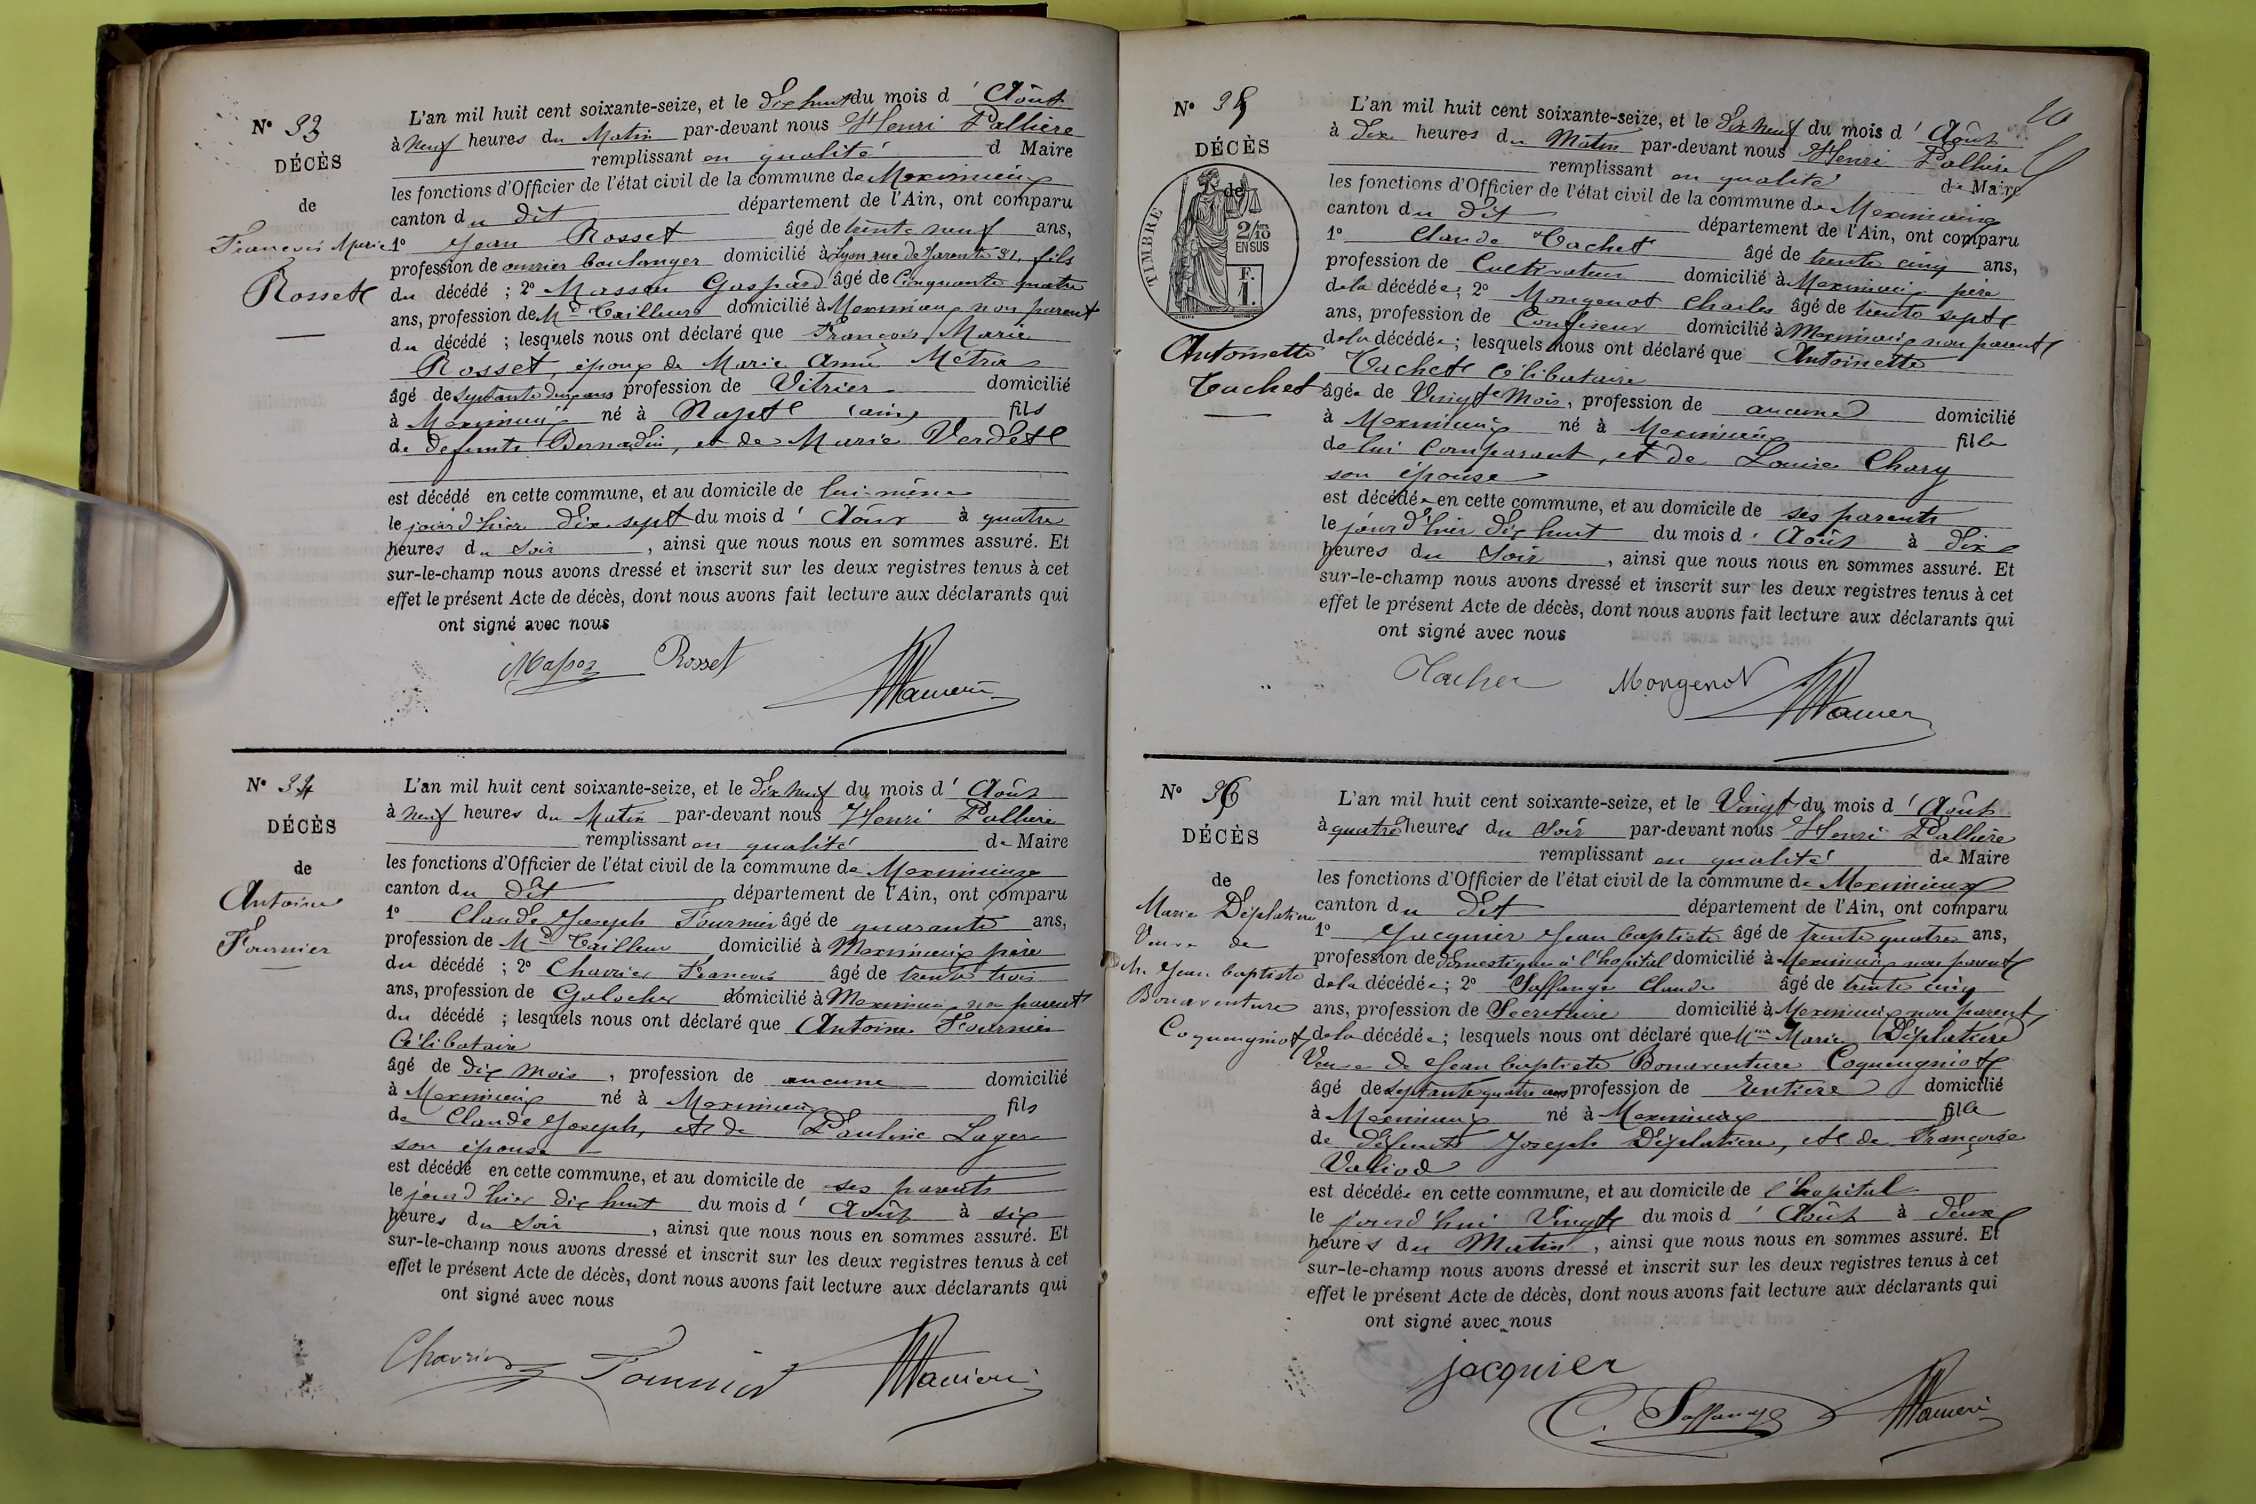 N° 33
DÉCÈS
de
François Marie
Rosset
L'an mil huit cent soixante-seize, et le dix huit du mois d' Août
à neuf heures du Matin par-devant nous Henri Pallière
remplissant en qualité d Maire
les fonctions d'Officier de l'état civil de la commune de Meximieux
canton du dit département de l'Ain, ont comparu
1° Jean Rosset âgé de trente neuf ans,
profession de ouvrier boulanger domicilié à Lyon rue de Jarente 31, fils
du décédé ; 2° Masson Gaspard âgé de Cinquante quatre
ans, profession de Md Tailleur domicilié à Meximieux non parent
du décédé ; lesquels nous ont déclaré que François Marie
Rosset, époux de Marie Aimée
âgé de septante deux ans profession de Vitrier domicilié
à Meximieux né à (ain) fils
de defunts Bernardin, et de Marie Verdet
est décédé en cette commune, et au domicile de lui-même
le jourd'hier dix sept du mois d' Août à quatre
heures du soir , ainsi que nous nous en sommes assuré. Et
sur-le-champ nous avons dressé et inscrit sur les deux registres tenus à cet
effet le présent Acte de décès, dont nous avons fait lecture aux déclarants qui
ont signé avec nous
Rosset
N° 34
DÉCÈS
de
Antoine
Fournier
L'an mil huit cent soixante-seize, et le dix neuf du mois d' Août
à neuf heures du Matin par-devant nous Henri Pallière
remplissant en qualité de Maire
les fonctions d'Officier de l'état civil de la commune de Meximieux
canton du dit département de l'Ain, ont comparu
1° Claude Joseph Fournier âgé de quarante ans,
profession de Md Tailleur domicilié à Meximieux père
du décédé ; 2° Chavrier François âgé de trente trois
ans, profession de Galocher domicilié à Meximieux non parent
du décédé ; lesquels nous ont déclaré que Antoine Fournier
Célibataire
âgé de dix mois , profession de aucune domicilié
à Meximieux né à Meximieux fils
de Claude Joseph, et de Pauline Lager
son épouse
est décédé en cette commune, et au domicile de ses parents
le jourd'hier dix huit du mois d' Août à six
heures du soir , ainsi que nous nous en sommes assuré. Et
sur-le-champ nous avons dressé et inscrit sur les deux registres tenus à cet
effet le présent Acte de décès, dont nous avons fait lecture aux déclarants qui
ont signé avec nous
Chavrier Fournier
20
N° 35
DÉCÈS
de
TIMBRE
2/10es
EN SUS
F.
1.
Antoinette
Tachet
L'an mil huit cent soixante-seize, et le dix neuf du mois d' Août
à dix heures du Matin par-devant nous Henri Pallière
remplissant en qualité de Maire
les fonctions d'Officier de l'état civil de la commune de Meximieux
canton du dit département de l'Ain, ont comparu
1° Claude Tachet âgé de trente cinq ans,
profession de Cultivateur domicilié à Meximieux père
de la décédée; 2° Mongenot Charles âgé de trente sept
ans, profession de Confiseur domicilié à Meximieux non parent
de la décédée; lesquels nous ont déclaré que Antoinette
Tachet Célibataire
âgée de Vingt Mois, profession de aucune domicilié
à Meximieux né à Meximieux fille
de lui Comparant, et de Louise Chary
son épouse
est décédée en cette commune, et au domicile de ses parents
le jourd'hier dix huit du mois d' Août à dix
heures du Soir , ainsi que nous nous en sommes assuré. Et
sur-le-champ nous avons dressé et inscrit sur les deux registres tenus à cet
effet le présent Acte de décès, dont nous avons fait lecture aux déclarants qui
ont signé avec nous
Mongenot
N° 36
DÉCÈS
de
Marie Déplatière
Veuve de
Jean baptiste
Bonaventure
Coquengniot
L'an mil huit cent soixante-seize, et le Vingt du mois d' Août
à quatre heures du Soir par-devant nous Henri Pallière
remplissant en qualité de Maire
les fonctions d'Officier de l'état civil de la commune de Meximieux
canton du dit département de l'Ain, ont comparu
1° Jacquier Jean baptiste âgé de trente quatre ans,
profession de domestique à l'hopital domicilié à Meximieux non parent
de la décédée; 2° Saffange Claude âgé de trente cinq
ans, profession de Secrétaire domicilié à Meximieux non parent,
de la décédée; lesquels nous ont déclaré que Marie Déplatière
Veuve de Jean baptiste Bonaventure Coquengniot
âgé de septante quatre ans profession de Rentière domicilié
à Meximieux né à Meximieux fille
de defunts Joseph Déplatière, et de Françoise
Valiod
est décédée en cette commune, et au domicile de l'hopital
le jourd'hui Vingt du mois d' Août à deux
heures du Matin , ainsi que nous nous en sommes assuré. Et
sur-le-champ nous avons dressé et inscrit sur les deux registres tenus à cet
effet le présent Acte de décès, dont nous avons fait lecture aux déclarants qui
ont signé avec nous
jacquier
C. Saffange